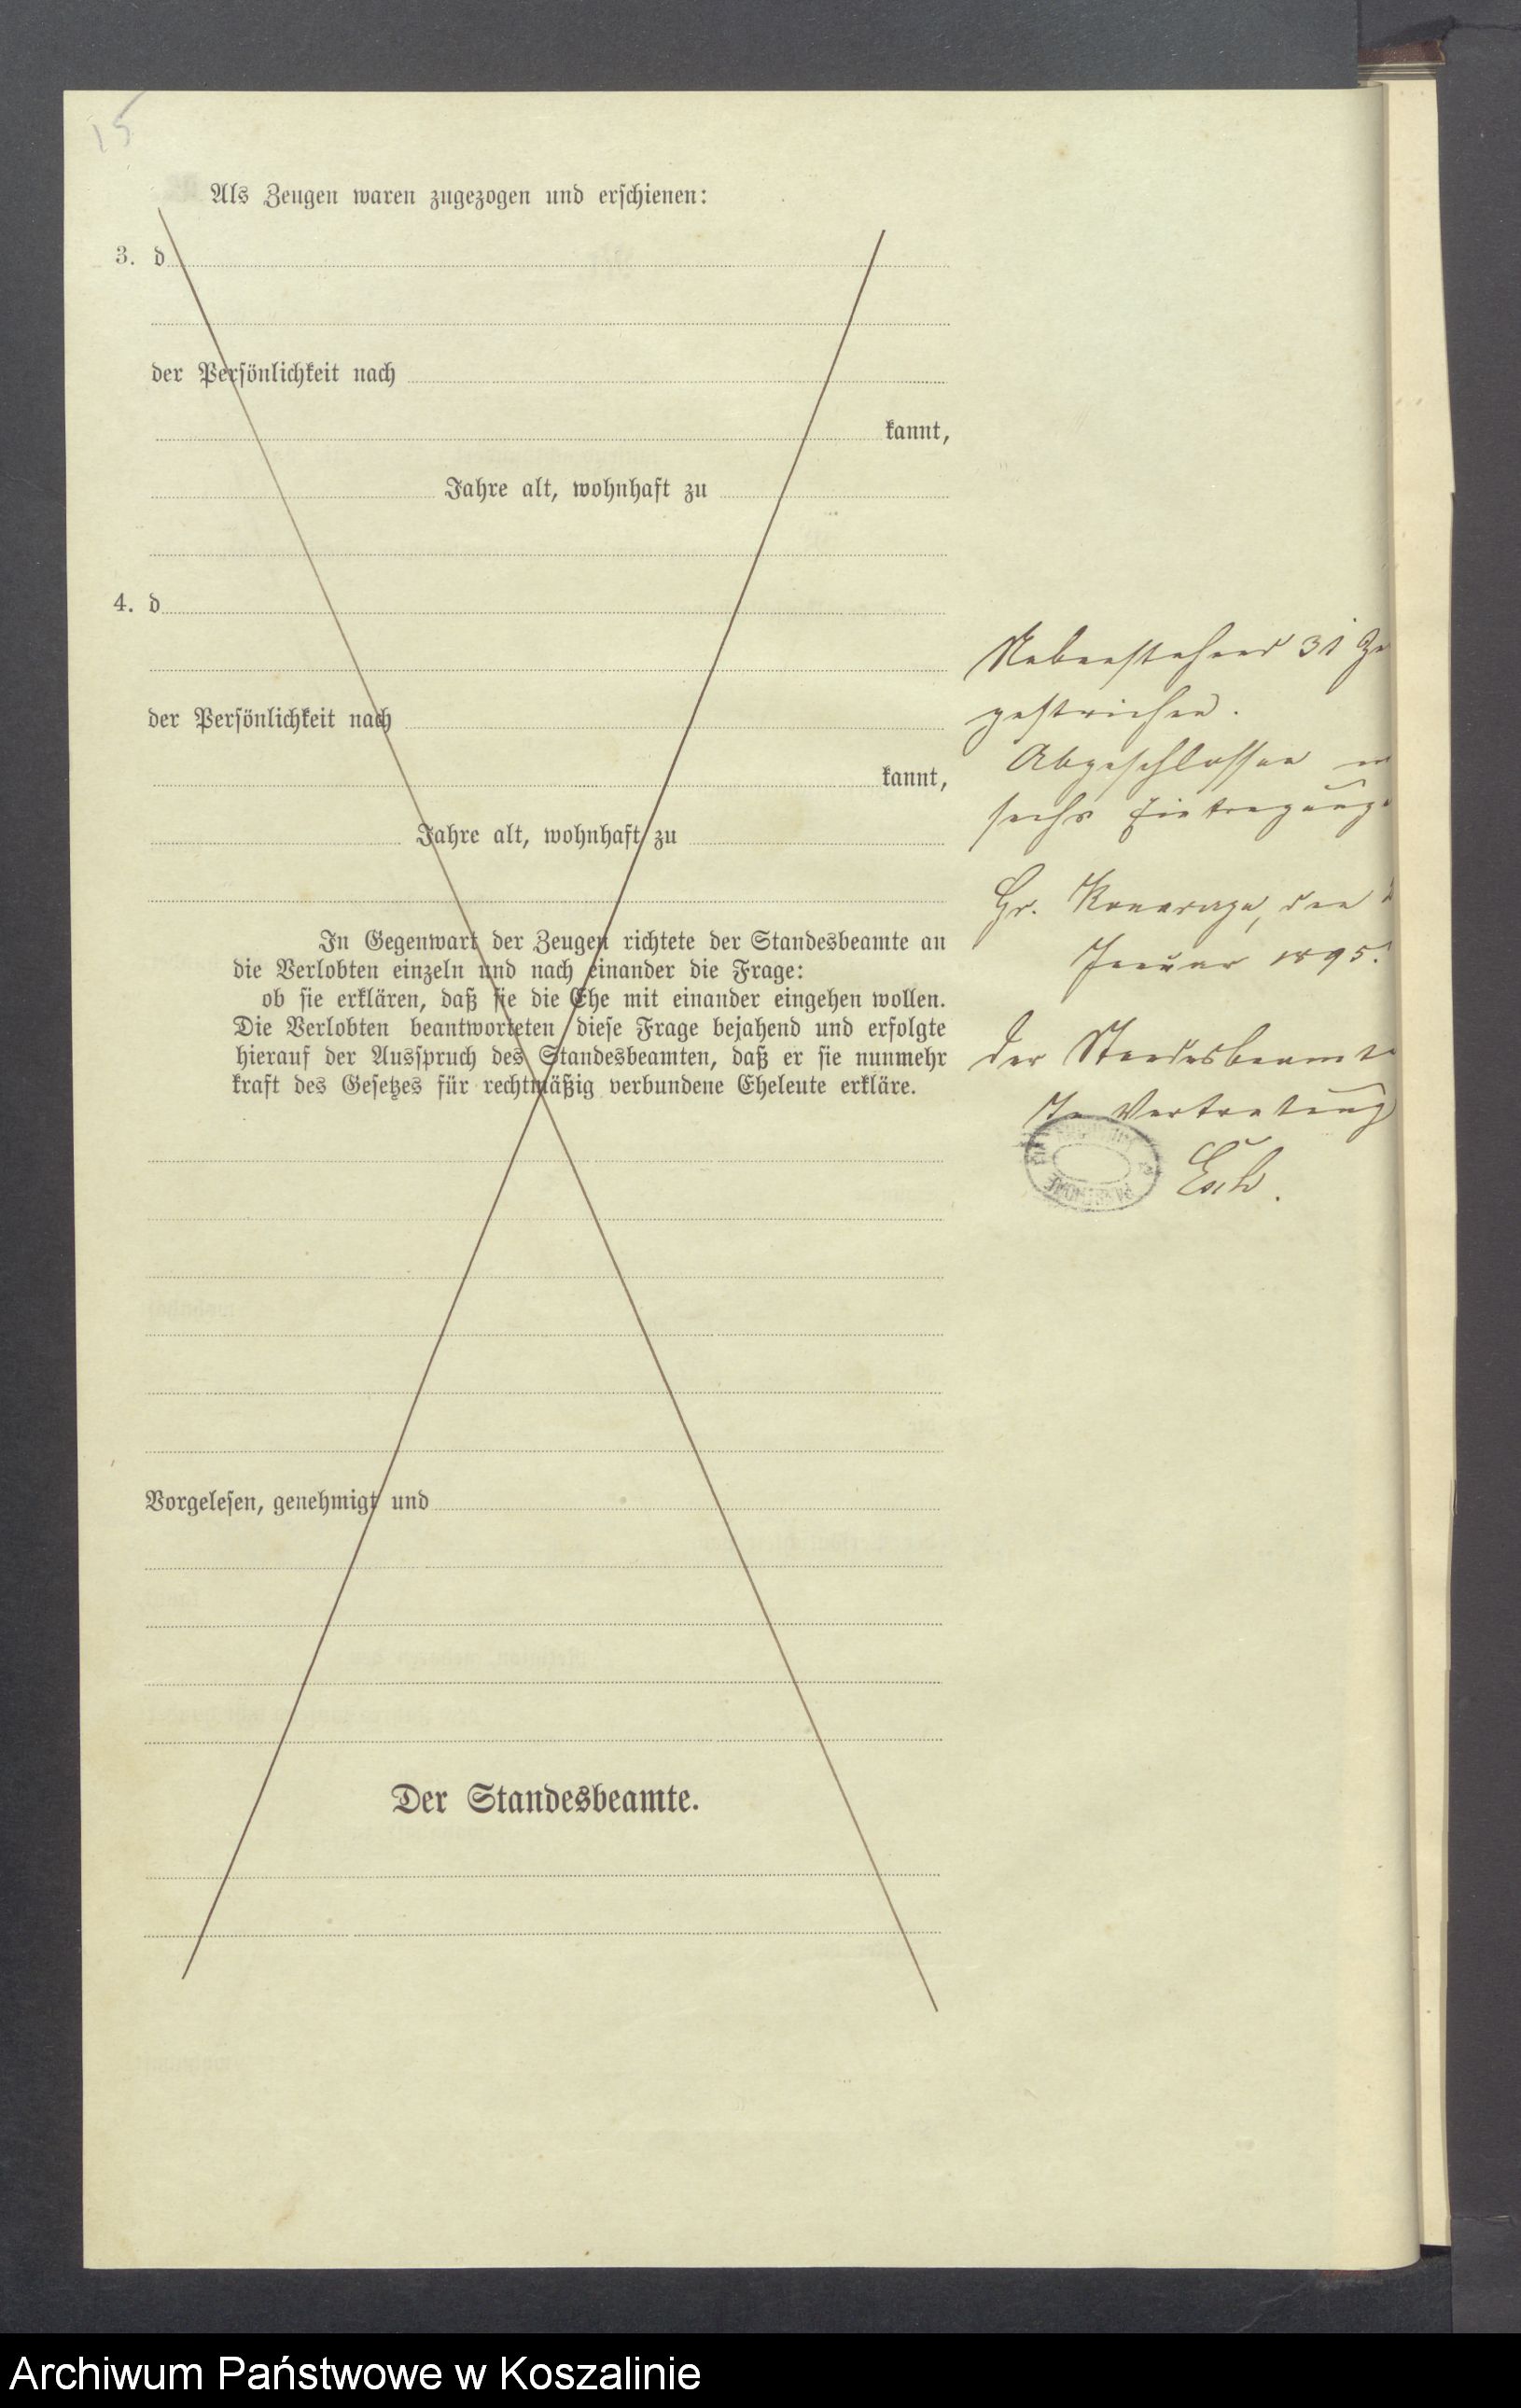 15
Als Zeugen waren zugezogen und erschienen:
3. d
der Persönlichkeit nach
kannt,
Jahre alt, wohnhaft zu
4. d
der Persönlichkeit nach
kannt,
Jahre alt, wohnhaft zu
In Gegenwart der Zeugen richtete der Standesbeamte an
die Verlobten einzeln und nach einander die Frage:
ob sie erklären, daß sie die Ehe mit einander eingehen wollen.
Die Verlobten beantworteten diese Frage bejahend und erfolgte
hierauf der Ausspruch des Standesbeamten, daß er sie nunmehr
kraft des Gesetzes für rechtmäßig verbundene Eheleute erkläre.
Vorgelesen, genehmigt und
Der Standesbeamte.
Nebenstehend 31
gestrichen.
Abgeschlossen
sechs Eintragung
Gr. den
Januar 1895.
Der Standesbeamte
In Vertretung
Archiwum Państwowe w Koszalinie